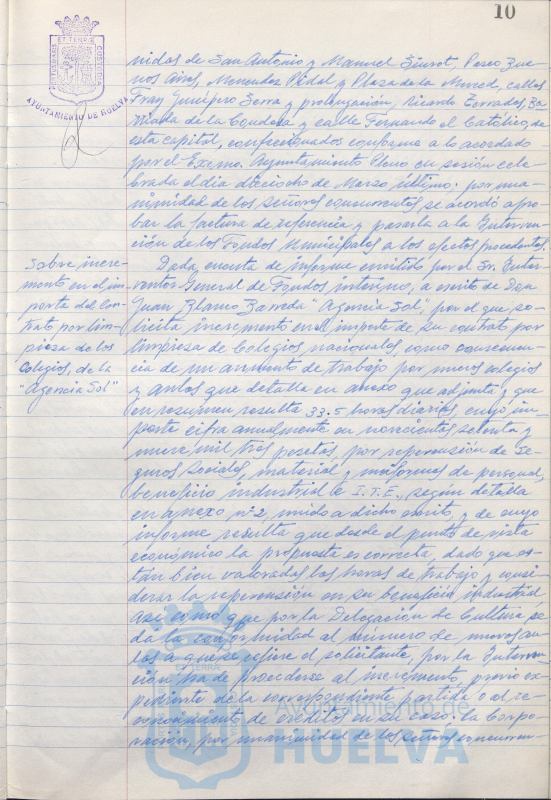 10
PORTUS MARIS ET TERRÆ CUSTODIA
AYUNTAMIENTO DE HUELVA
nidas de San Antonio y Manuel Siurot, Paseo Bue-
nos Aires, Menendez Pidal y Plaza de la Merced, calles
Fray Junipero Serra y prolongación, Ricardo Terrades, Ba-
rriada de la Condesa y calle Fernando el Católico, de
esta capital, confeccionados conforme a lo acordado
por el Excmo. Ayuntamiento Pleno en sesión cele-
brada el dia dieciocho de Marzo último; por una-
nimidad de los señores concurrentes, se acordó apro-
bar la factura de referencia y pasarla a la Interven-
ción de los Fondos Municipales a los efectos procedentes.
Sobre incre-
mento en el im-
porte del con-
trato por lim-
pieza de los
Colegios, de la
"Agencia Sol"
Dada cuenta de informe emitido por el Sr. Inter-
ventor General de Fondos interino, a escrito de Don
Juan Blanco Barreda "Agencia Sol", por el que so-
licita incremento en el importe de su contrato por
limpieza de Colegios nacionales, como consecuen-
cia de un aumento de trabajo por nuevos colegios
y aulas que detalla en anexo que adjunta y que
en resumen resulta 33.5 horas diarias, cuyo im-
porte cifra anualmente en novecientas setenta y
nueve mil tres pesetas, por repercusión de Se-
guros Sociales, material y uniformes de personal,
beneficio industrial e I.T.E., según detalla
en anexo nº 2, unido a dicho escrito y de cuyo
informe resulta que desde el punto de vista
económico la propuesta es correcta, dado que es-
tán bien valoradas las horas de trabajo y consi-
derar la repercusión en su beneficio industrial
así como que por la Delegación de Cultura se
da la conformidad al número de nuevas au-
las a que se refiere el solicitante, por la Interven-
ción ha de procederse al incremento, previo ex-
pediente de la correspondiente partida o al re-
conocimiento de créditos en su caso; la Corpo-
ración, por unanimidad de los señores concurren-
Ayuntamiento de
HUELVA